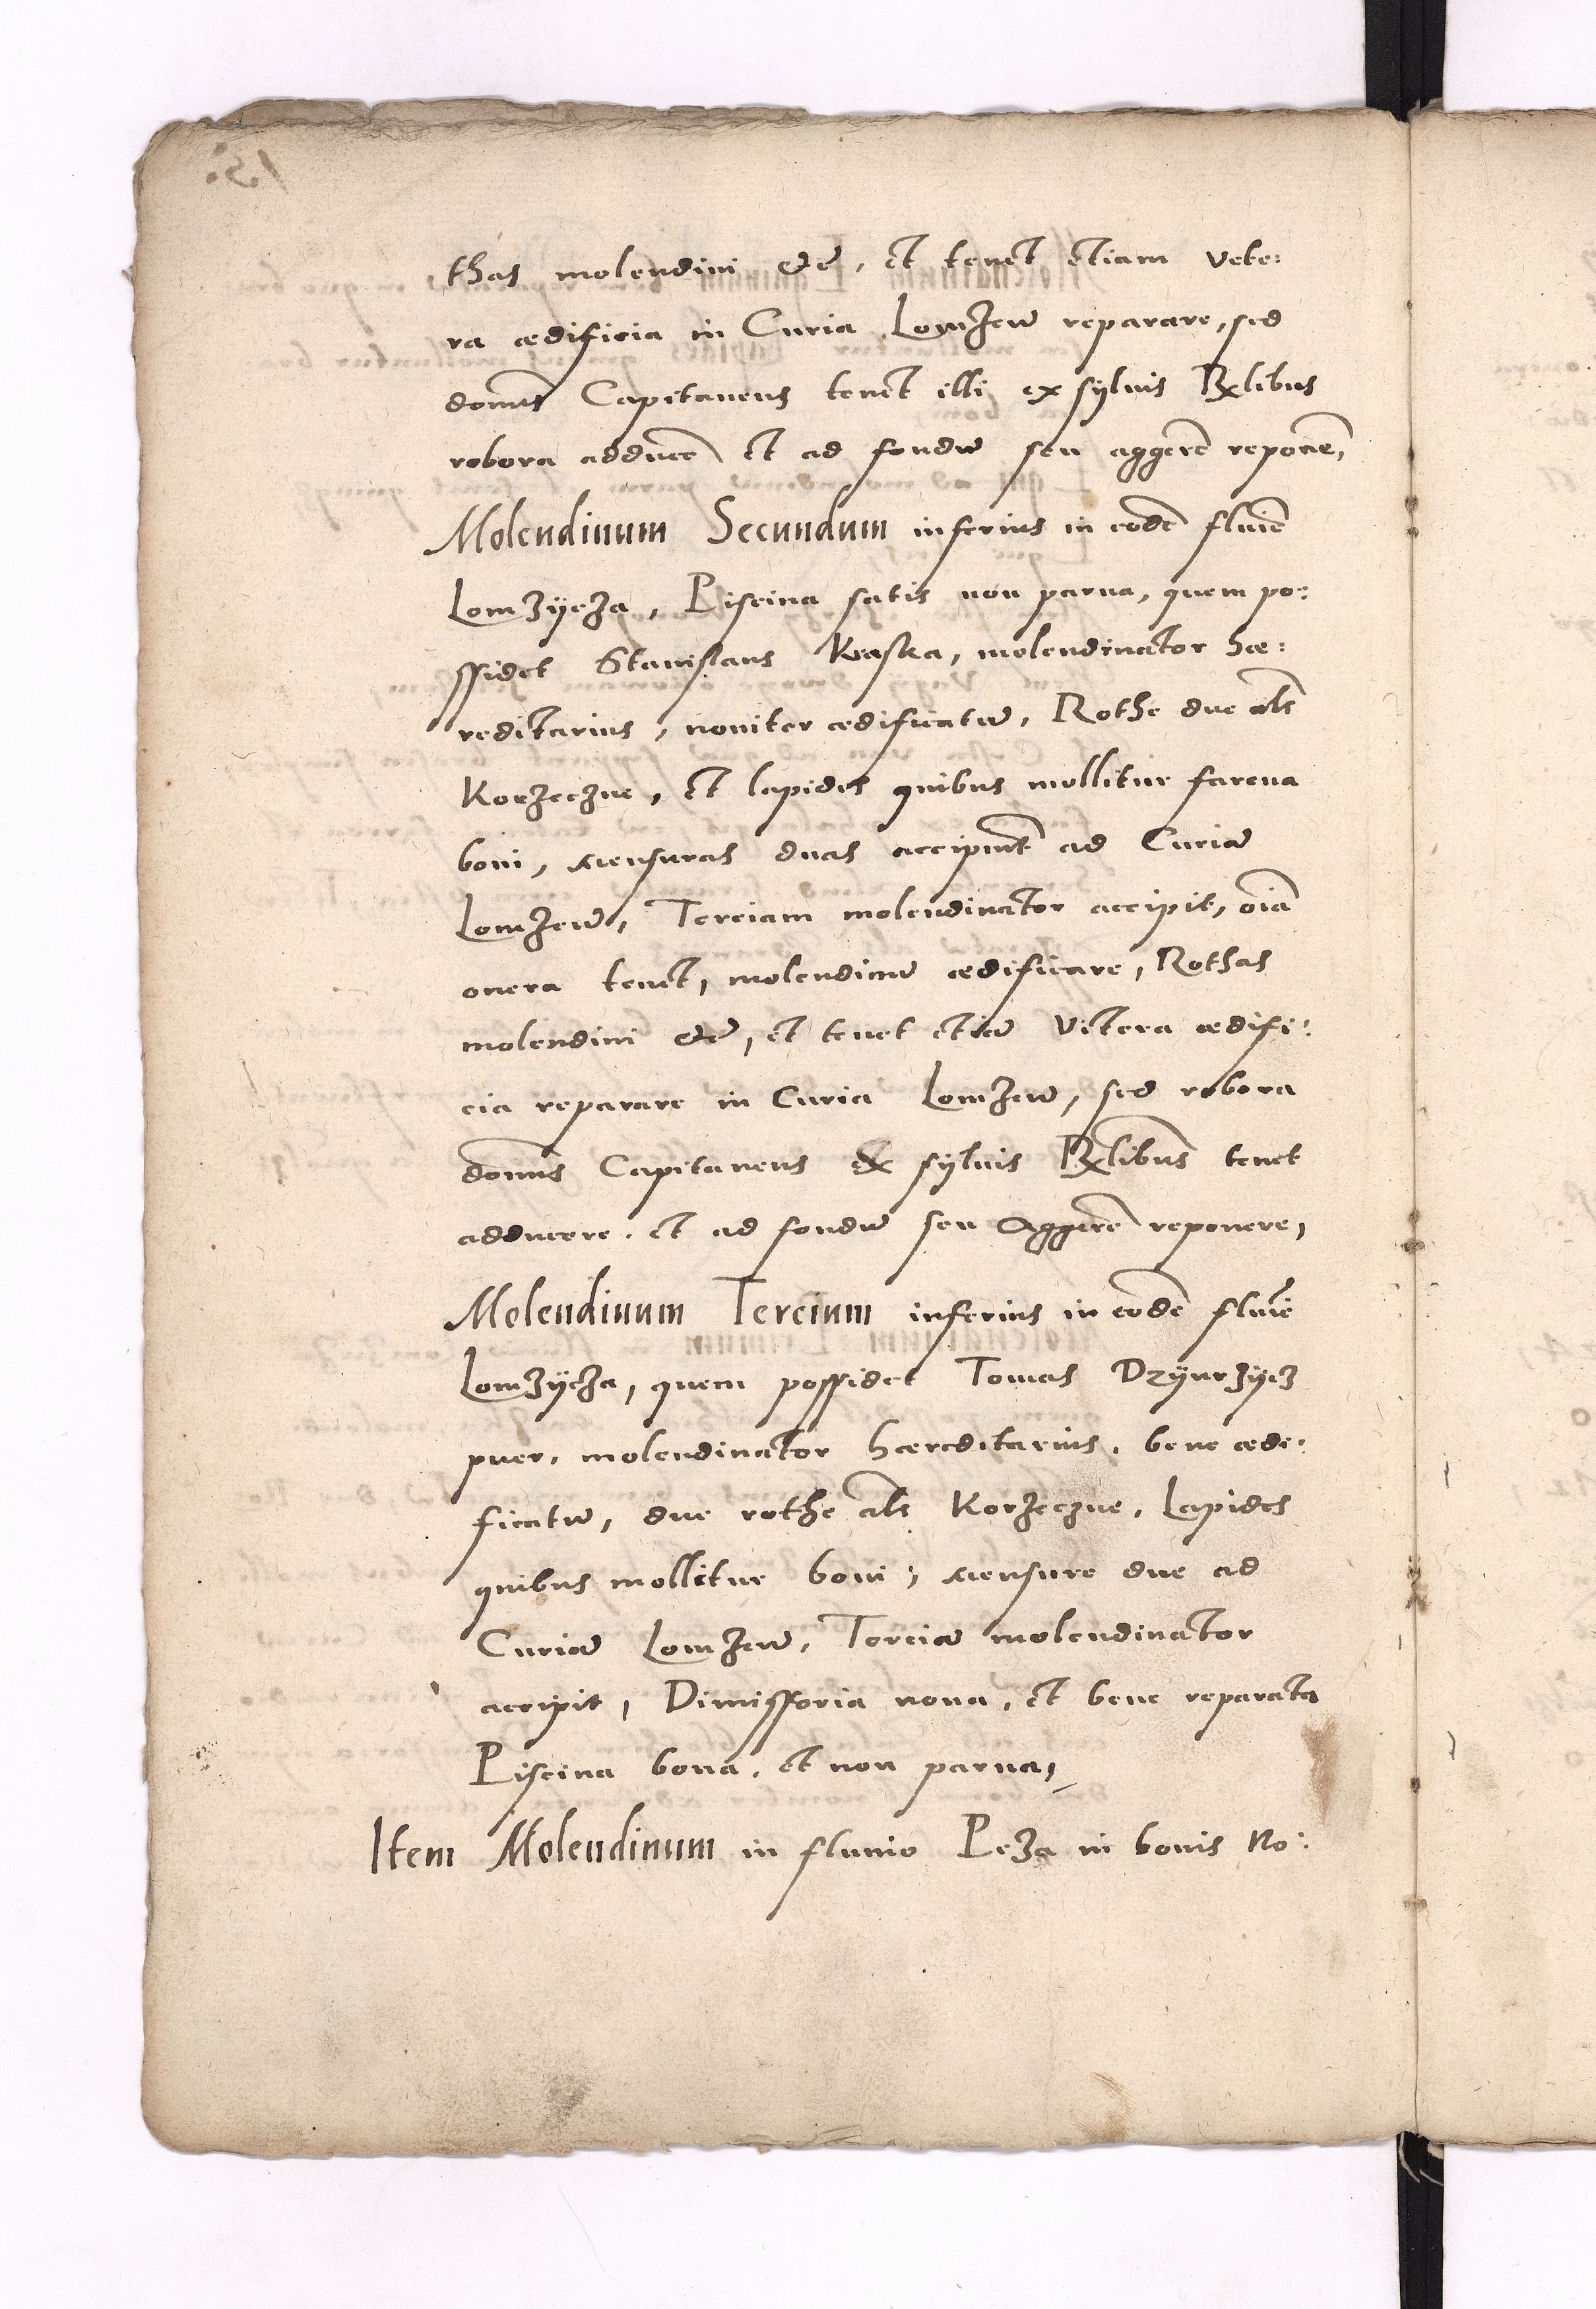 thas molendini etc, et tenet etiam vete:
ra ædificia in Curia Lomzen̄ reparare, sed
domin̄s Capitaneus tenet illi ex syluis Rx̄libus
robora adducē et ad fondū seu aggerē reponē,
Molendinum Secundum inferius in eodē fluīe
Lomzÿcza, Piscina satis non parua, quem po:
ssidet Stanislaus Kaska, molendinator hæ:
reditarius, nouiter ædificatū, Rothe due al̄s
Korzeczne, et lapides quibus mollitur farena
boni, mensuras duas accipiūt ad Curiā
Lomzen̄, Terciam molendinator accipit, oīa
onera tenet, molendinū ædificare, Rothas
molendini etc, et tenet etiā Vetera ædifi:
cia reparare in Curia Lomzen̄, sed robora
domin̄s Capitaneus ex syluis Rx̄libus tenet
adducere. et ad fondū seu Aggerē reponere,
Molendinum Tercium inferius in eodē fluīe
Lomzÿcza, quem possidet Tomas Dzÿurzÿcz
puer, molendinator hæreditarius, bene ædi:
ficatū, due rothe al̄s Korzeczne, Lapides
quibus mollitur boni, mensure due ad
Curiā Lomzen̄, Terciā molendinator
accipit, Dimissoria noua, et bene reparata
Piscina bona, et non parua,
Item Molendinum in fluuio Peza in bonis No: